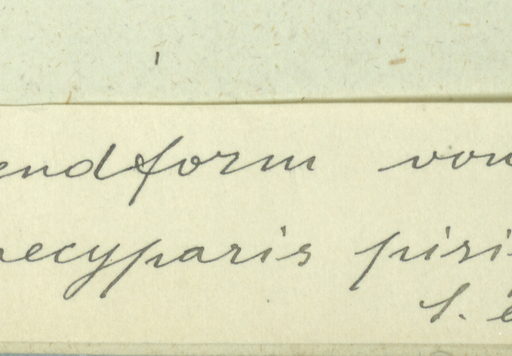 endform von
aecyparis pisi
S. e